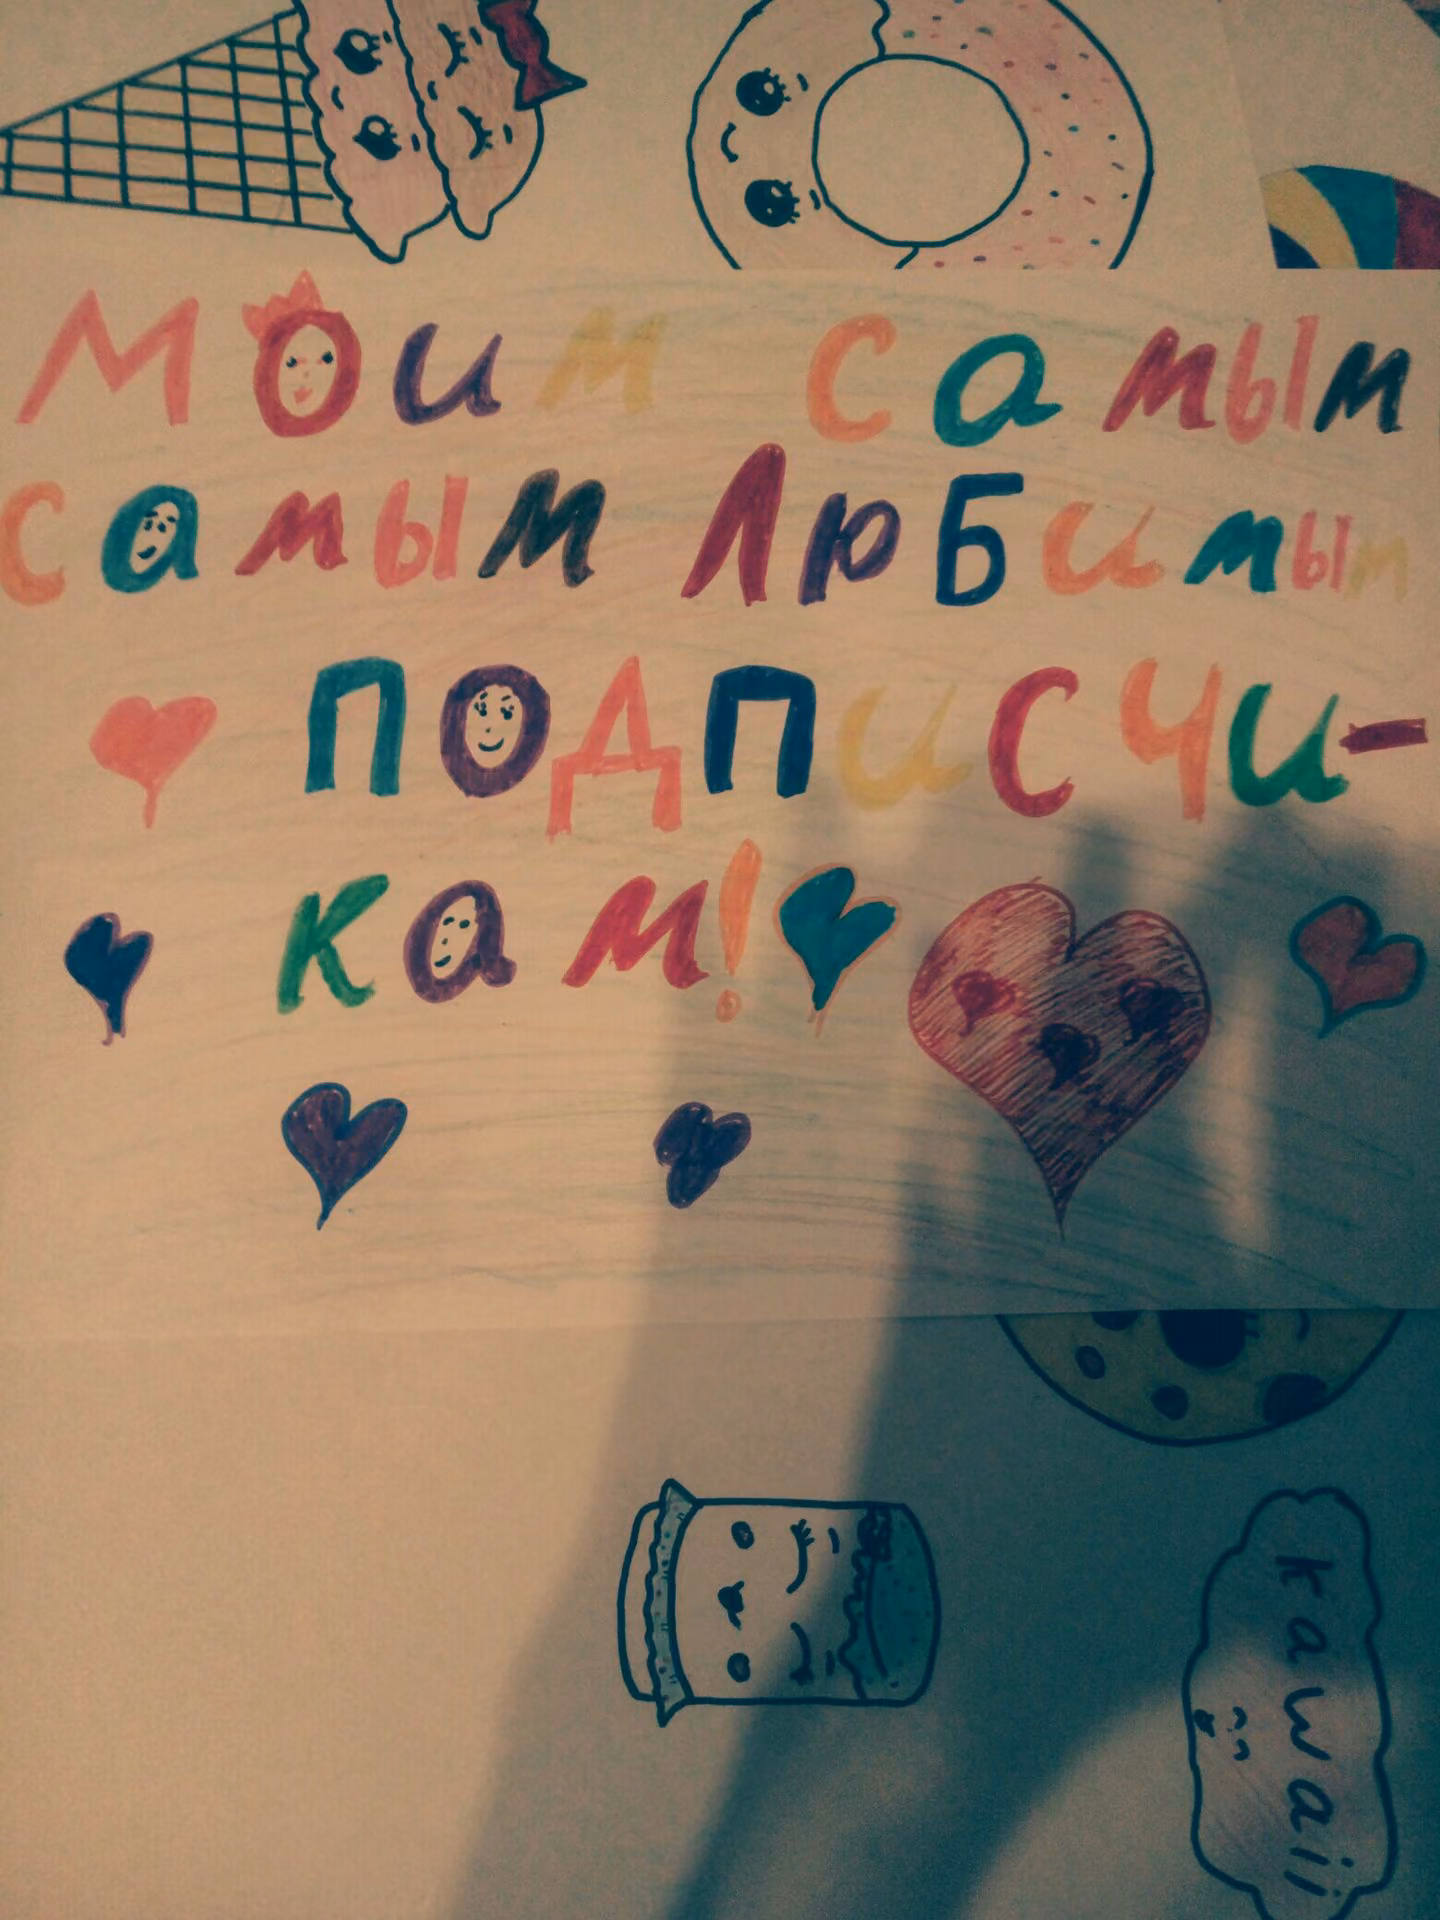 Моим самым
самым Любимым
подписчи-
кам!
kawaii